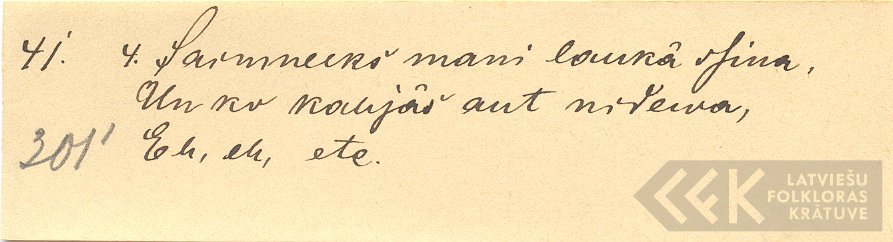 41. 4. Saimneeks mani laukâ sſina,
Un ko kahjâs aut nedewa,
301' Eh, eh, etc.
LATVIEŠU
FOLKLORAS
KRĀTUVE